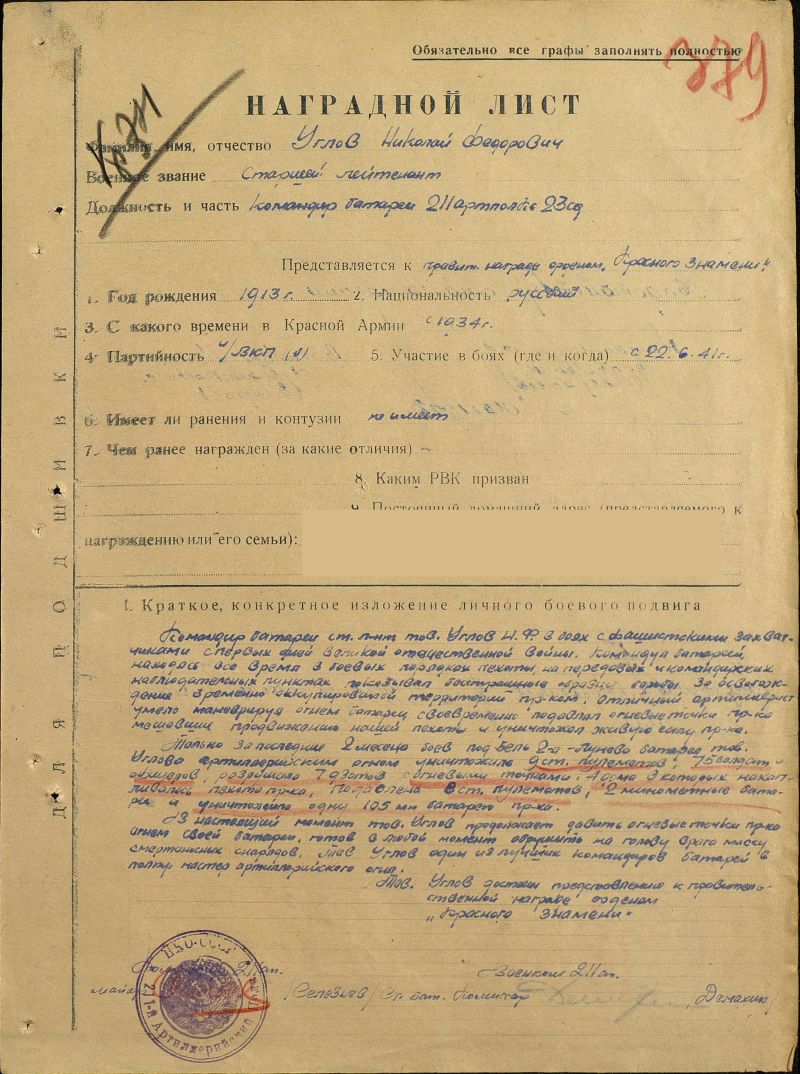 Обязательно все графы заполнять полностью
379
НАГРАДНОЙ ЛИСТ
Фамилия, имя, отчество Углов Николай Федорович
Военное звание Старший лейтенант
Должность и часть Командир батареи 211 артполка 23сд
Представляется к правит. награде орденом "Красного Знамени".
1. Год рождения 1913 г. 2. Национальность русский
3. С какого времени в Красной Армии с 1934г.
4. Партийность ч/ВКП(б) 5. Участие в боях (где и когда) с 22.6.41г.
6. Имеет ли ранения и контузии не имеет
7. Чем ранее награжден (за какие отличия) –
8. Каким РВК призван
9. Постоянный домашний адрес (представляемого к
награждению или его семьи):
1. Краткое, конкретное изложение личного боевого подвига
Командир батареи ст. л-нт тов. Углов Н.Ф в боях с фашистскими захват-
чиками с первых дней Великой отечественной войны. Командуя батареей
находясь все время в боевых порядках пехоты, на передовых и командирских
наблюдательных пунктах показывал бесстрашные образцы борьбы за освобож-
дение временно оккупированой территории пр-ком. Отличный артиллерист
умело маневрируя огнем батареи своевременно подавлял огневые точки пр-ка
мешавшие продвижению нашей пехоты и уничтожал живую силу пр-ка.
Только за последние 2 месеца боев под Бель 2-я - Лунево батарея тов.
Углова артиллерийским огнем уничтожила 9 ст. пулеметов, 75 солдат и
офицеров, разрушило 7 дзотов с огневыми точками, 4 дома в которых накап-
ливалась пехота пр-ка, Подавлена 8 ст. пулеметов, 2 минометные бата-
реи и уничтожено одну 105 мм батарею пр-ка.
В настоящий момент тов. Углов продолжает давить огневые точки пр-ка
огнем своей батареи, готов в любой момент обрушить на голову врага массу
смертоносных снарядов. Тов Углов один из лучших командиров батарей в
полку мастер артиллерийского огня.
Тов. Углов достоин представлению к правитель-
ственной награде орденом
"Красного Знамени"
211 ап. Военком 211 ап.
майор /Селезнев/ Ст. бат. Комиссар Демахин/
НКО-СССР 211-й Артиллерийский
ДЛЯ ПОДШИВКИ